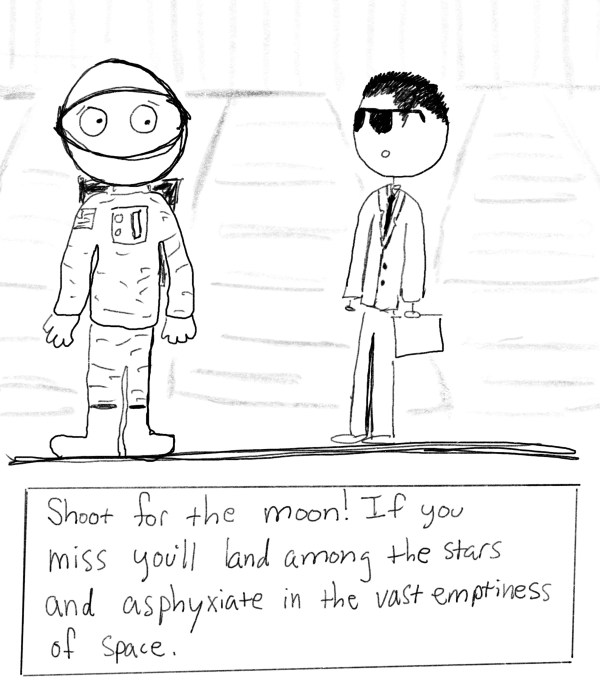 Shoot for the moon! If you
miss you'll land among the stars
and asphyxiate in the vast emptiness
of space.